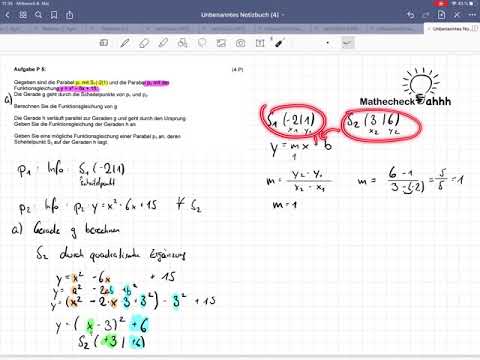 11:35 Mittwoch 4. Mai
93 %
Unbenanntes Notizbuch (4)
Aufgabe P 5:
(4 P)
Gegeben sind die Parabel p₁ mit S₁(-2|1) und die Parabel p₂ mit der
Funktionsgleichung y = x² – 6x + 15.
Die Gerade g geht durch die Scheitelpunkte von p₁ und p₂.
a)
Berechnen Sie die Funktionsgleichung von g
Die Gerade h verläuft parallel zur Geraden g und geht durch den Ursprung.
Geben Sie die Funktionsgleichung der Geraden h an
Geben Sie eine mögliche Funktionsgleichung einer Parabel p₃ an, deren
Scheitelpunkt S₃ auf der Geraden h liegt.
Mathecheck ahhh
S₁ (-2|1) S₂ (3|6)
x₁ y₁ x₂ y₂
y = mx + b
1
m = y₂ - y₁ / x₂ - x₁
m = 6 - 1 / 3 - (-2) = 5/5 = 1
m = 1
p₁ : Info : S₁ (-2|1)
Scheitelpunkt
p₂ : Info : p₂ : y = x² - 6x + 15 S₂
a) Gerade g berechnen
S₂ durch quadratische Ergänzung
y = x² - 6x + 15
y = a² - 2ab + b²
y = (x² - 2·x·3 + 3²) - 3² + 15
y = (x - 3)² + 6
S₂ (+3 | +6)